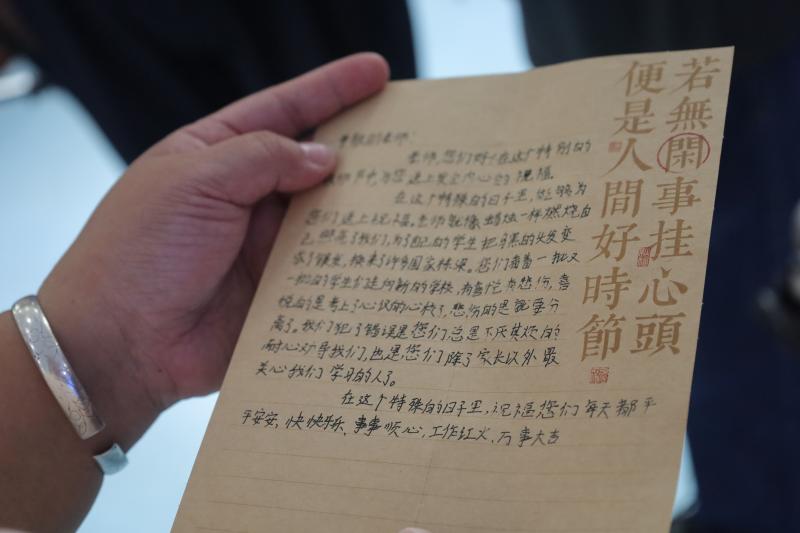 若無閑事挂心頭
便是人間好時節
敬的老师：
老师，您们好！在这个特别的
教师节里，为您送上发至内心的祝福。
在这个特殊的日子里，能够为
您们送上祝福。老师就像蜡烛一样燃烧自
己，照亮了我们，为了自己的学生把乌黑的头发变
成了银发，换来了许多国家栋梁。您们看着一批又
一批的学生们走向新的学校，有喜悦有悲伤，喜
悦的是考上了心议的心校了，悲伤的是就要分
离了。我们犯了错误是您们总是不厌其烦的
耐心劝导我们，也是您们除了家长以外最
关心我们学习的人了。
在这个特殊的日子里，祝福您们每天都平
平安安，快快乐乐、事事顺心，工作红火，万事大吉